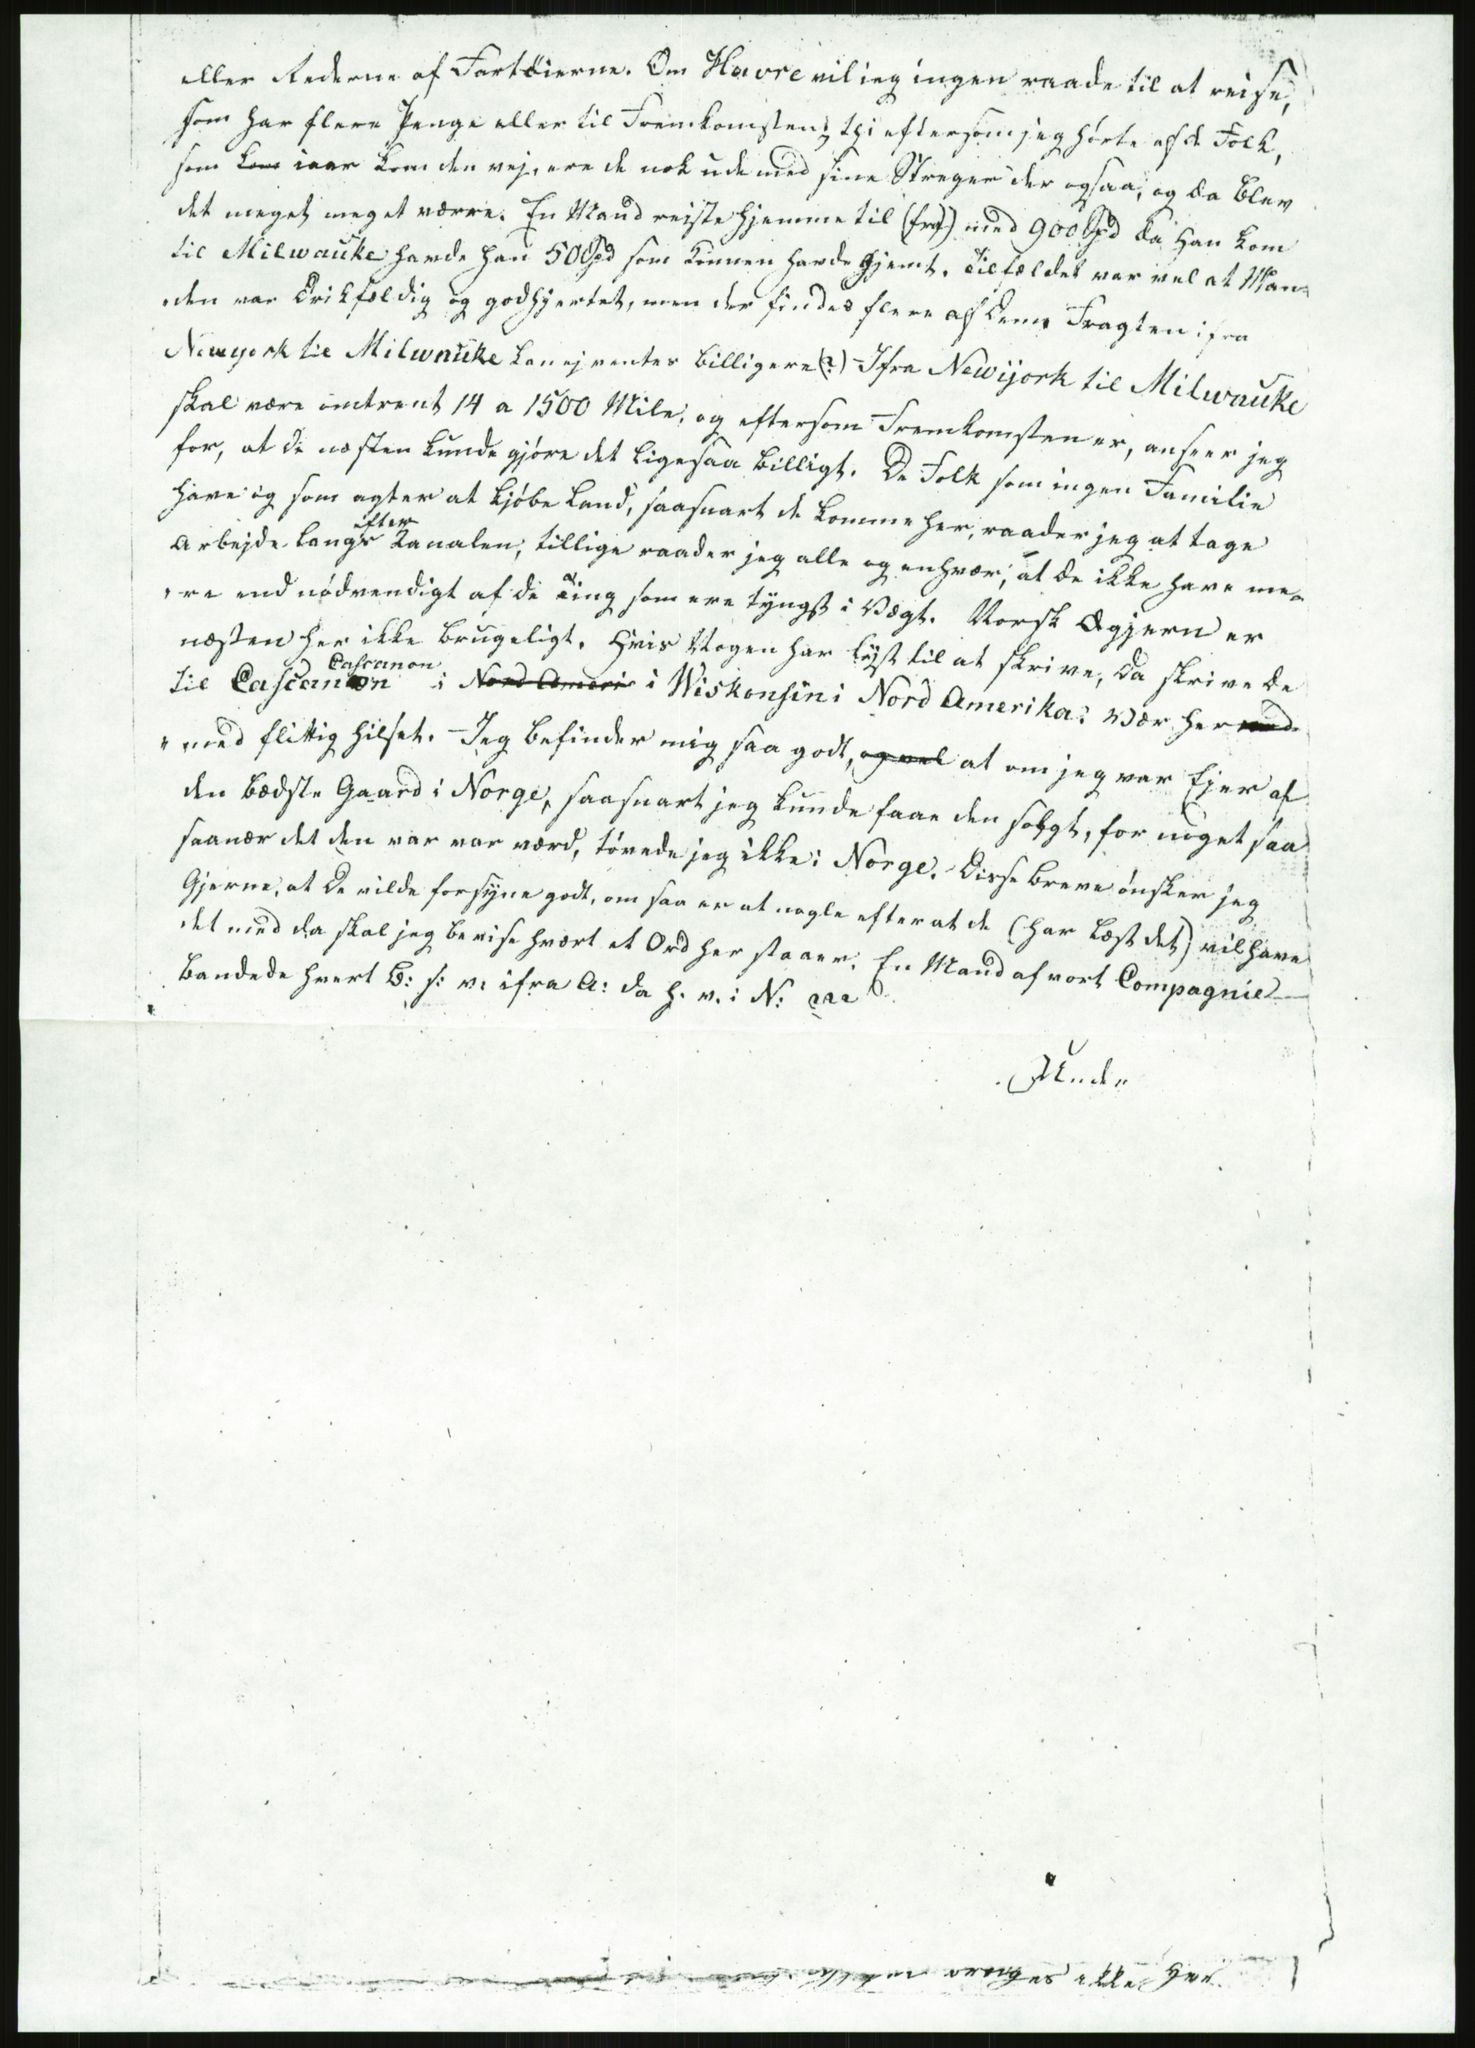 eller Rederne af Fartöierne. Om Havre vil jeg ingen raade til at reise,
som har flere Penge eller til Fremkomsten; thi eftersom jeg hörte af de Folk,
som kom iaar kom den vej, ere de nok ude med sine Streger der ogsaa, og da blev
det meget meget værre. En Mand reiste hjemme til (fra) med 900 Spd da han kom
til Milwauke havde han 50 Spd som Konnen havde gjemt. Tilfældet var vel at Man-
den var Drikfældig og godhjertet, men der findes flere af dem. Fragten ifra
Newyork til Milwauke kan ej ventes billigere (?) Ifra Newyork til Milwauke
skal være omtrent 14 a 1500 Mile, og eftersom Fremkomsten er, anseer jeg
for, at de næsten kunde gjöre det ligesaa billigt. De Folk som ingen Familie
have og som agter at kjöbe Land, saasnart de komme her, raader jeg at tage
Arbejde langs efter Kanalen, tillige raader jeg alle og enhver, at de ikke have me-
re end nödvendigt af de Ting som ere tyngst i Vægt. Norsk Øgjern er
næsten her ikke brugeligt. Hvis Nogen har lyst til at skrive, da skrive de
til Cascanon Cascanon i Nord Ameri i Wiskonsin i Nord Amerika. Vær her med
med flittig hilset. Jeg befinder mig saa godt, og vel at om jeg var Ejer af
den bedste Gaard i Norge, saasnart jeg kunde faae den solgt, for noget saa
saanær det den var var værd, tövede jeg ikke i Norge. Disse Breve önsker jeg
Gjerne, at De vilde forsyne godt, om saa er at nogle efter at de (har læst det) vil have
det med da skal jeg bevise hvert et Ord her staaer. En Mand af vort Compagnie
bandede hvert B: s: v: ifra A: da h. v. i N:
ikke her